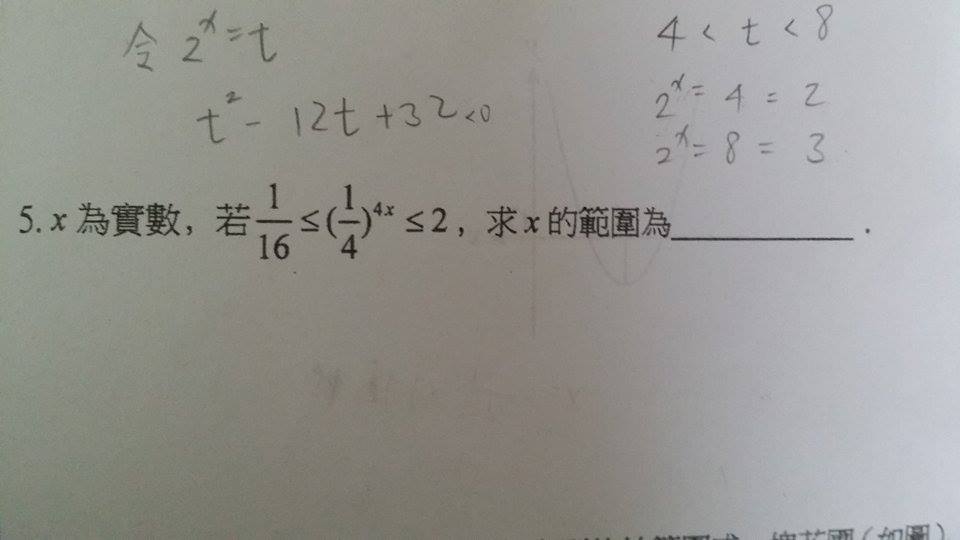 令 2^x = t
t² - 12t + 32 < 0
4 < t < 8
2^x = 4 = 2
2^x = 8 = 3
5. x 為實數，若 1/16 ≤ (1/4)^{4x} ≤ 2，求 x 的範圍為__________.
(如圖)